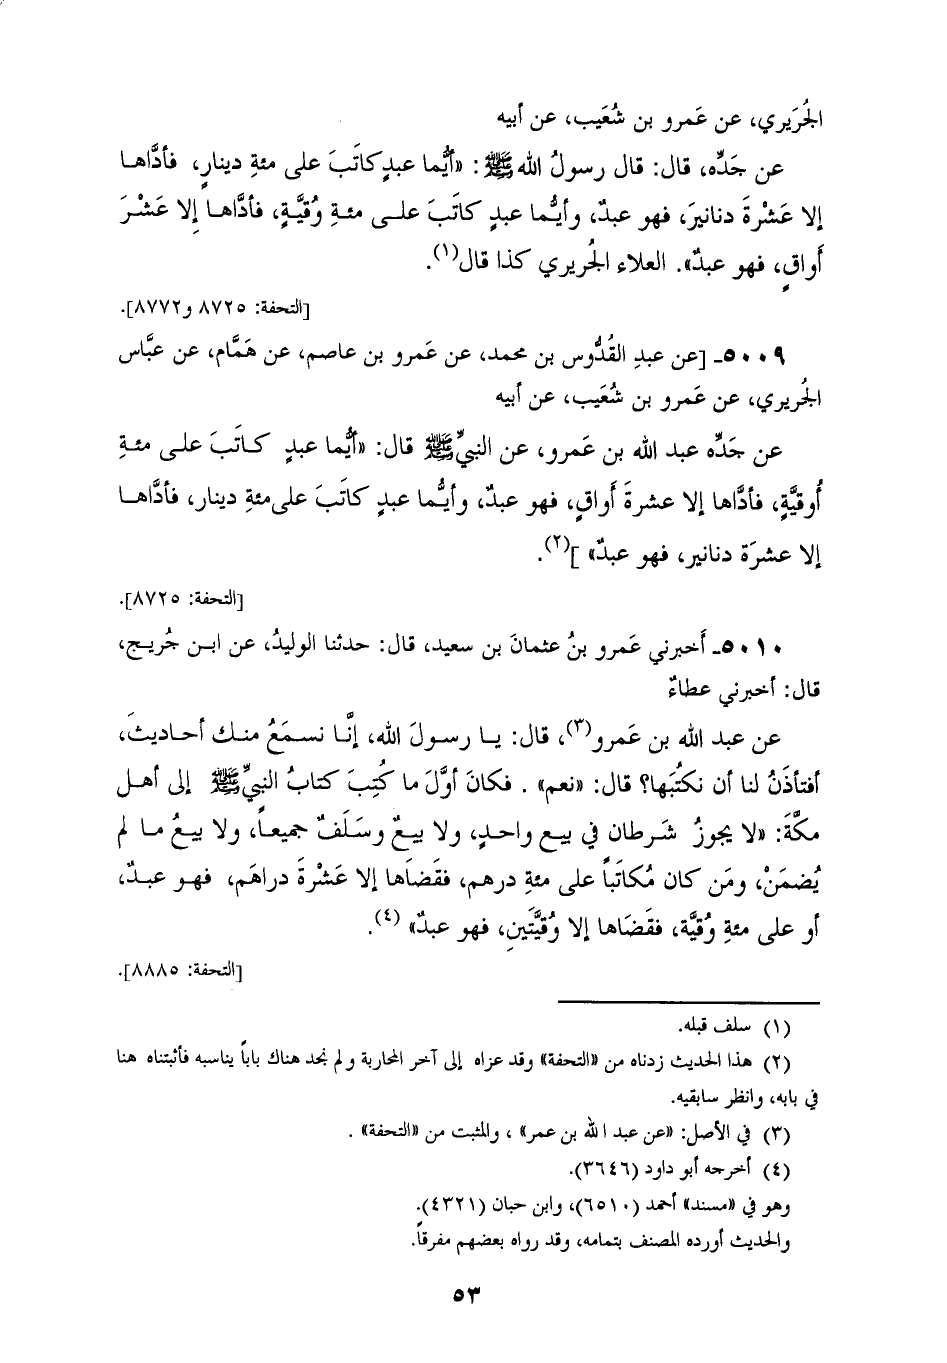 الجُرَيري، عن عَمرو بن شُعَيب، عن أبيه
عن جَدِّه، قال: قال رسولُ الله ﷺ: «أيُّما عبدٍ كاتَبَ على مئةِ دينارٍ، فأدَّاها
إلا عَشْرةَ دنانيرَ، فهو عبدٌ، وأيُّما عبدٍ كاتَبَ على مئةِ وُقيَّةٍ، فأدَّاها إلا عَشْرَ
أَواقٍ، فهو عبدٌ». العلاء الجُريري كذا قال(١).
[التحفة: ٨٧٢٥ و٨٧٧٢].
٥٠٠٩ـ [عن عبدِ القُدُّوس بن محمد، عن عَمرو بن عاصم، عن هَمَّام، عن عبَّاس
الجُريري، عن عَمرو بن شُعَيب، عن أبيه
عن جَدِّه عبد الله بن عَمرو، عن النبيِّ ﷺ قال: «أيُّما عبدٍ كاتَبَ على مئةِ
أُوقيَّةٍ، فأدَّاها إلا عشرةَ أَواقٍ، فهو عبدٌ، وأيُّما عبدٍ كاتَبَ على مئةِ دينار، فأدَّاها
إلا عشرَة دنانير، فهو عبدٌ» ](٢).
[التحفة: ٨٧٢٥].
٥٠١٠ـ أَخبرني عَمرو بنُ عثمانَ بن سعيد، قال: حدثنا الوليدُ، عن ابن جُريج،
قال: أخبرني عطاءٌ
عن عبد الله بن عَمرو(٣)، قال: يا رسولَ الله، إنَّا نسمَعُ منك أحاديثَ،
أفتأذَنُ لنا أن نكتُبَها؟ قال: «نعم» . فكانَ أوَّلَ ما كُتِبَ كتابُ النبيِّ ﷺ إلى أهل
مكَّةَ: «لا يجوزُ شَرطان في بيع واحدٍ، ولا بيعٌ وسَلَفٌ جميعاً، ولا بيعُ ما لم
يُضمَنْ، ومَن كان مُكاتَباً على مئةِ درهم، فقَضَاها إلا عَشْرةَ دراهَم، فهو عبدٌ،
أو على مئةِ وُقيَّة، فقَضَاها إلا وُقيَّتَينِ، فهو عبدٌ» (٤).
[التحفة: ٨٨٨٥].
(١) سلف قبله.
(٢) هذا الحديث زدناه من «التحفة» وقد عزاه إلى آخر المحاربة ولم نجد هناك باباً يناسبه فأثبتناه هنا
في بابه، وانظر سابقيه.
(٣) في الأصل: «عن عبد الله بن عمر» ، والمثبت من «التحفة» .
(٤) أخرجه أبو داود (٣٦٤٦).
وهو في «مسند» أحمد (٦٥١٠)، وابن حبان (٤٣٢١).
والحديث أورده المصنف بتمامه، وقد رواه بعضهم مفرقاً.
٥٣